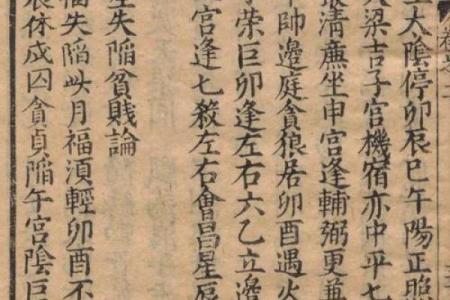 卷之二
太陰停卯辰巳午陽正照
梁吉子宮機宿亦中平七
最清廉坐申宮逢輔弼更兼
帥邊庭貪狼居卯酉遇火
榮巨卯逢左右六乙立邊
宮逢七殺左右會昌星辰
失陷貧賤論
失陷此月福須輕卯酉不
休成囚貪貞陷午宮陰巨